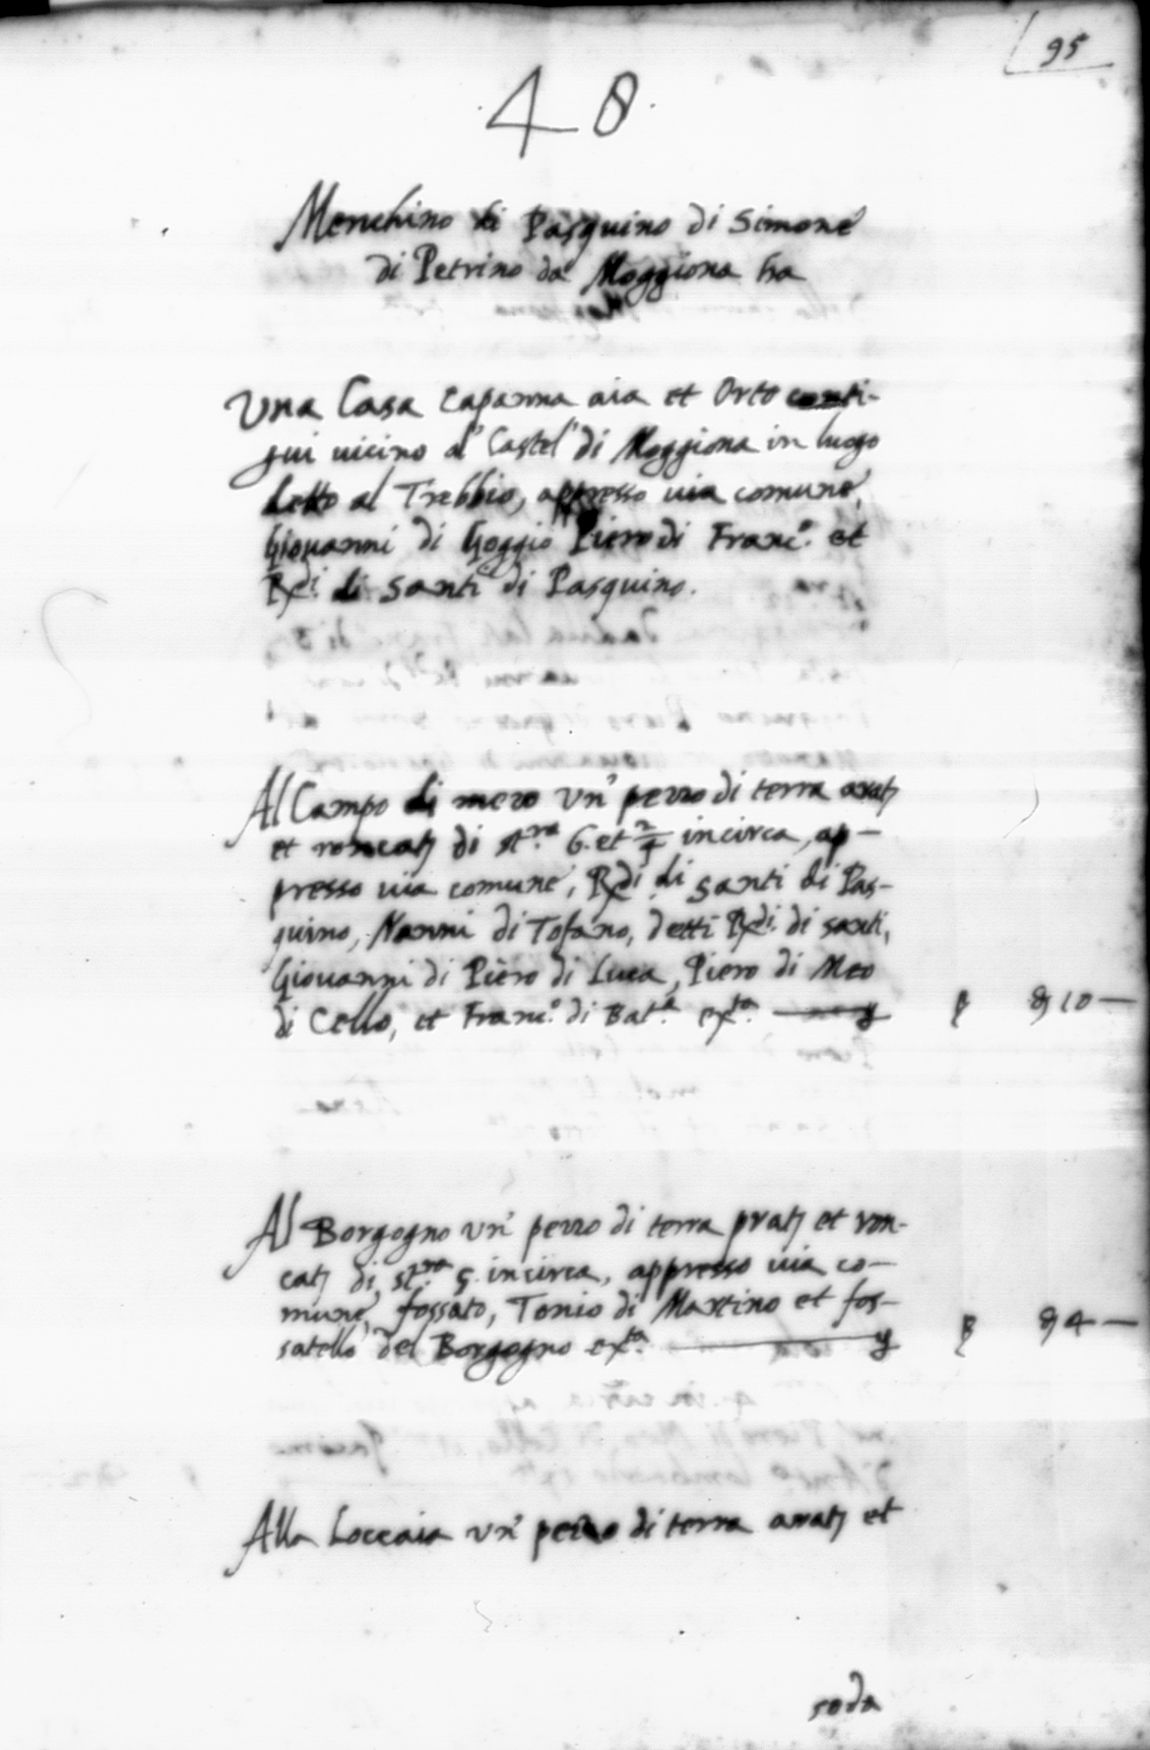 95
48
Menchino di Pasquino di Simone
di Petrino da Moggiona ha
Una Casa Capanna aia et Orto conti-
gui uicino al Castel di Moggiona in luogo
detto al Trebbio, appresso uia comune,
Giouanni di Goggio Piero di Franc.º et
Rdi. di Santi di Pasquino.
Al Campo di mezo un' pezzo di terra arat
et roncat di st.ra 6. et incirca, ap-
presso uia comune, Rdi. di Santi di Pas-
quino, Nanni di Tofano, detti Rdi. di santi,
Giouanni di Piero di Luca, Piero di Meo
di Cello, et Franc.º di Bat.a ex.ta 10 —
Al Borgogno un' pezzo di terra prat et ron-
cat di st.ra 5. incirca, appresso uia co-
mune, fossato, Tonio di Martino et fos-
satello del Borgogno ex.ta 4 —
Alla Loccaia un' pezzo di terra arat et
soda